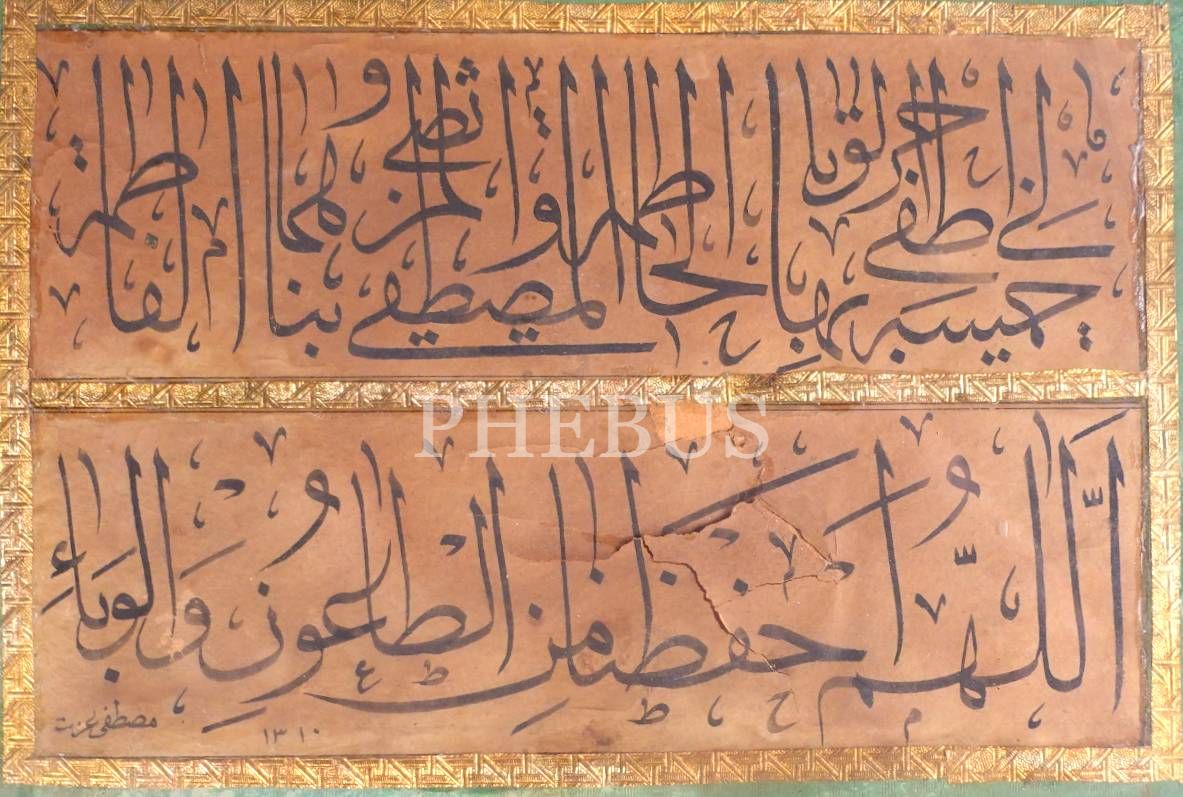 لي خمسة اطفي بها حر الوباء الحاطمة المصطفى والمرتضى وابناهما والفاطمة
PHEBUS
اَللّٰهُمَّ احْفَظْنَا مِنَ الطَّاعُونِ وَالْوَبَاءِ
١٣١٠ مصطفى عزت